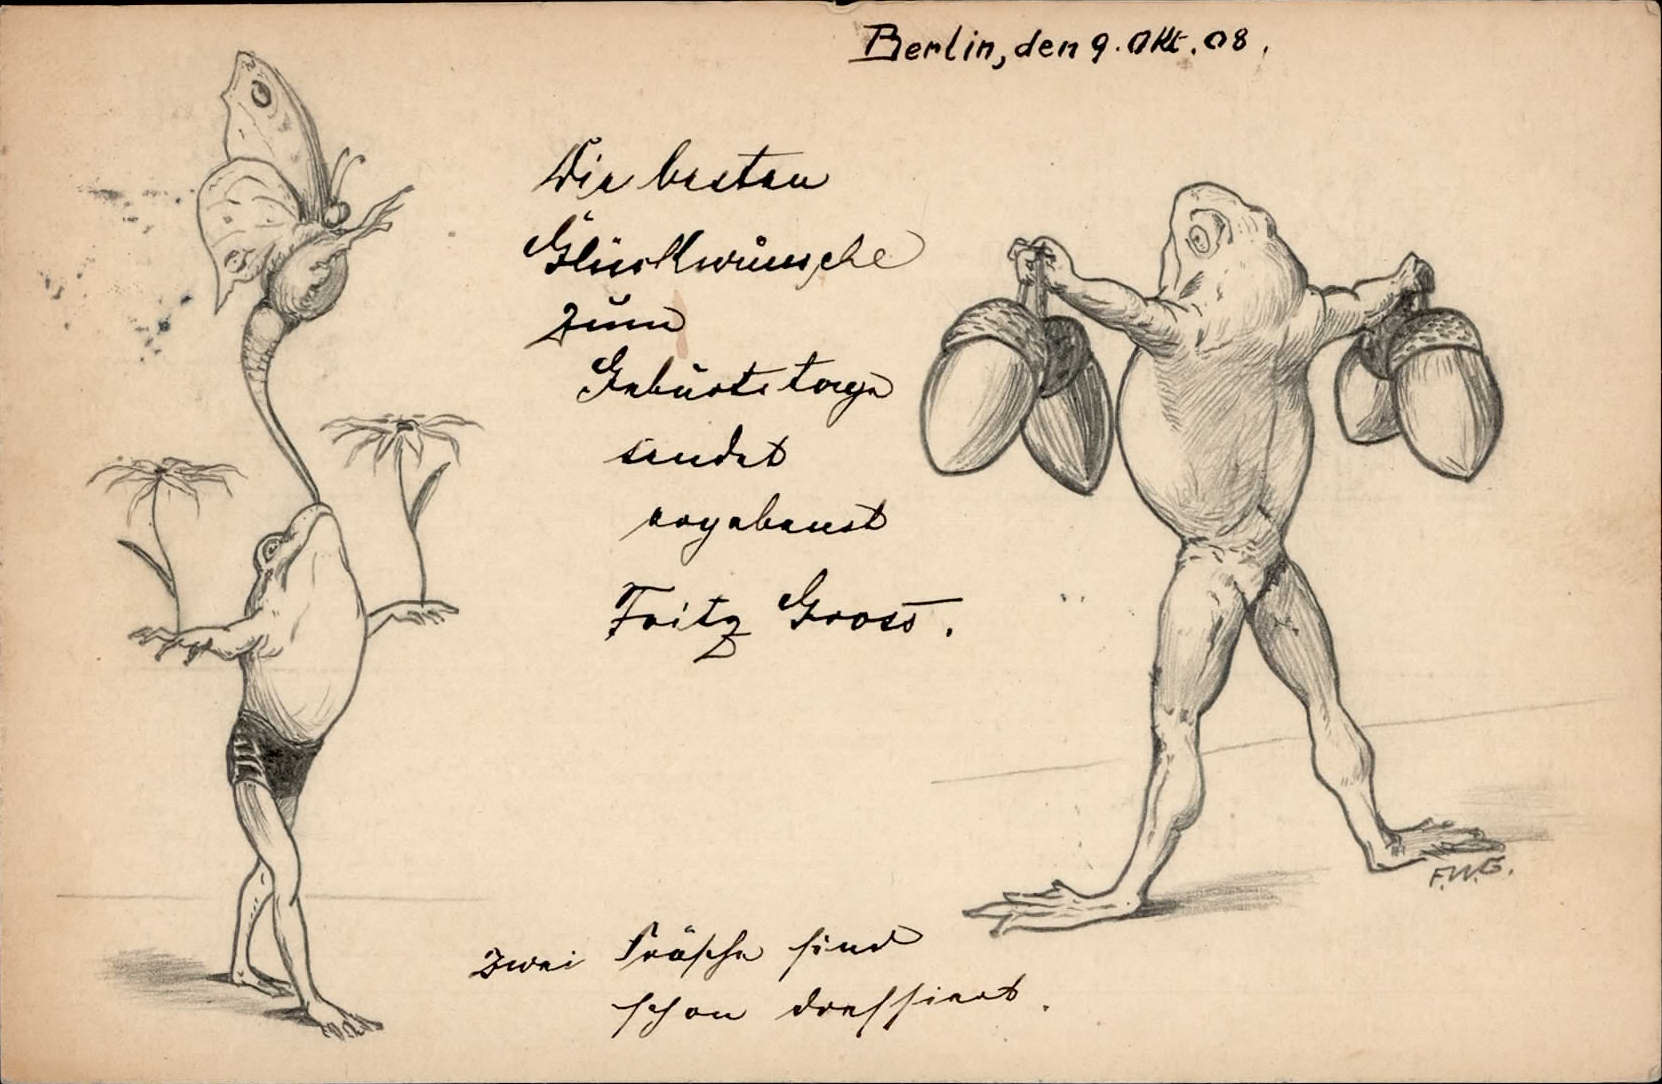 Berlin, den 9. Okt. 08.
Die besten
Glückwünsche
zum
Geburtstage
sendet
ergebenst
Fritz Gross.
F.W.G.
Zwei Frösche sind
schon dressiert.